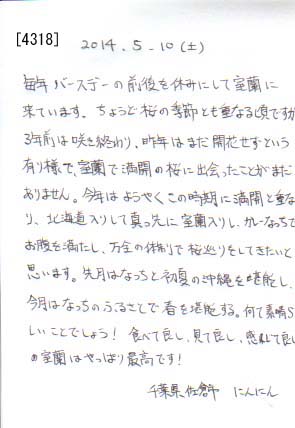 [4318]
2014.5.10(土)
毎年バースデーの前後を休みにして室蘭に
来ています。ちょうど桜の季節とも重なる頃ですが
3年前は咲き終わり、昨年はまだ開花せずという
有り様で、室蘭で満開の桜に出会ったことがまだ
ありません。今年はようやくこの時期に満開と重な
り、北海道入りして真っ先に室蘭入りし、カレーなっちで
お腹を満たし、万全の体制で桜巡りをしてきたいと
思います。先月はなっちと初夏の沖縄を堪能し、
今月はなっちのふるさとで春を堪能する。何て素晴ら
しいことでしょう! 食べて良し、見て良し、感じて良し
の室蘭はやっぱり最高です!
千葉県佐倉市 にんにん